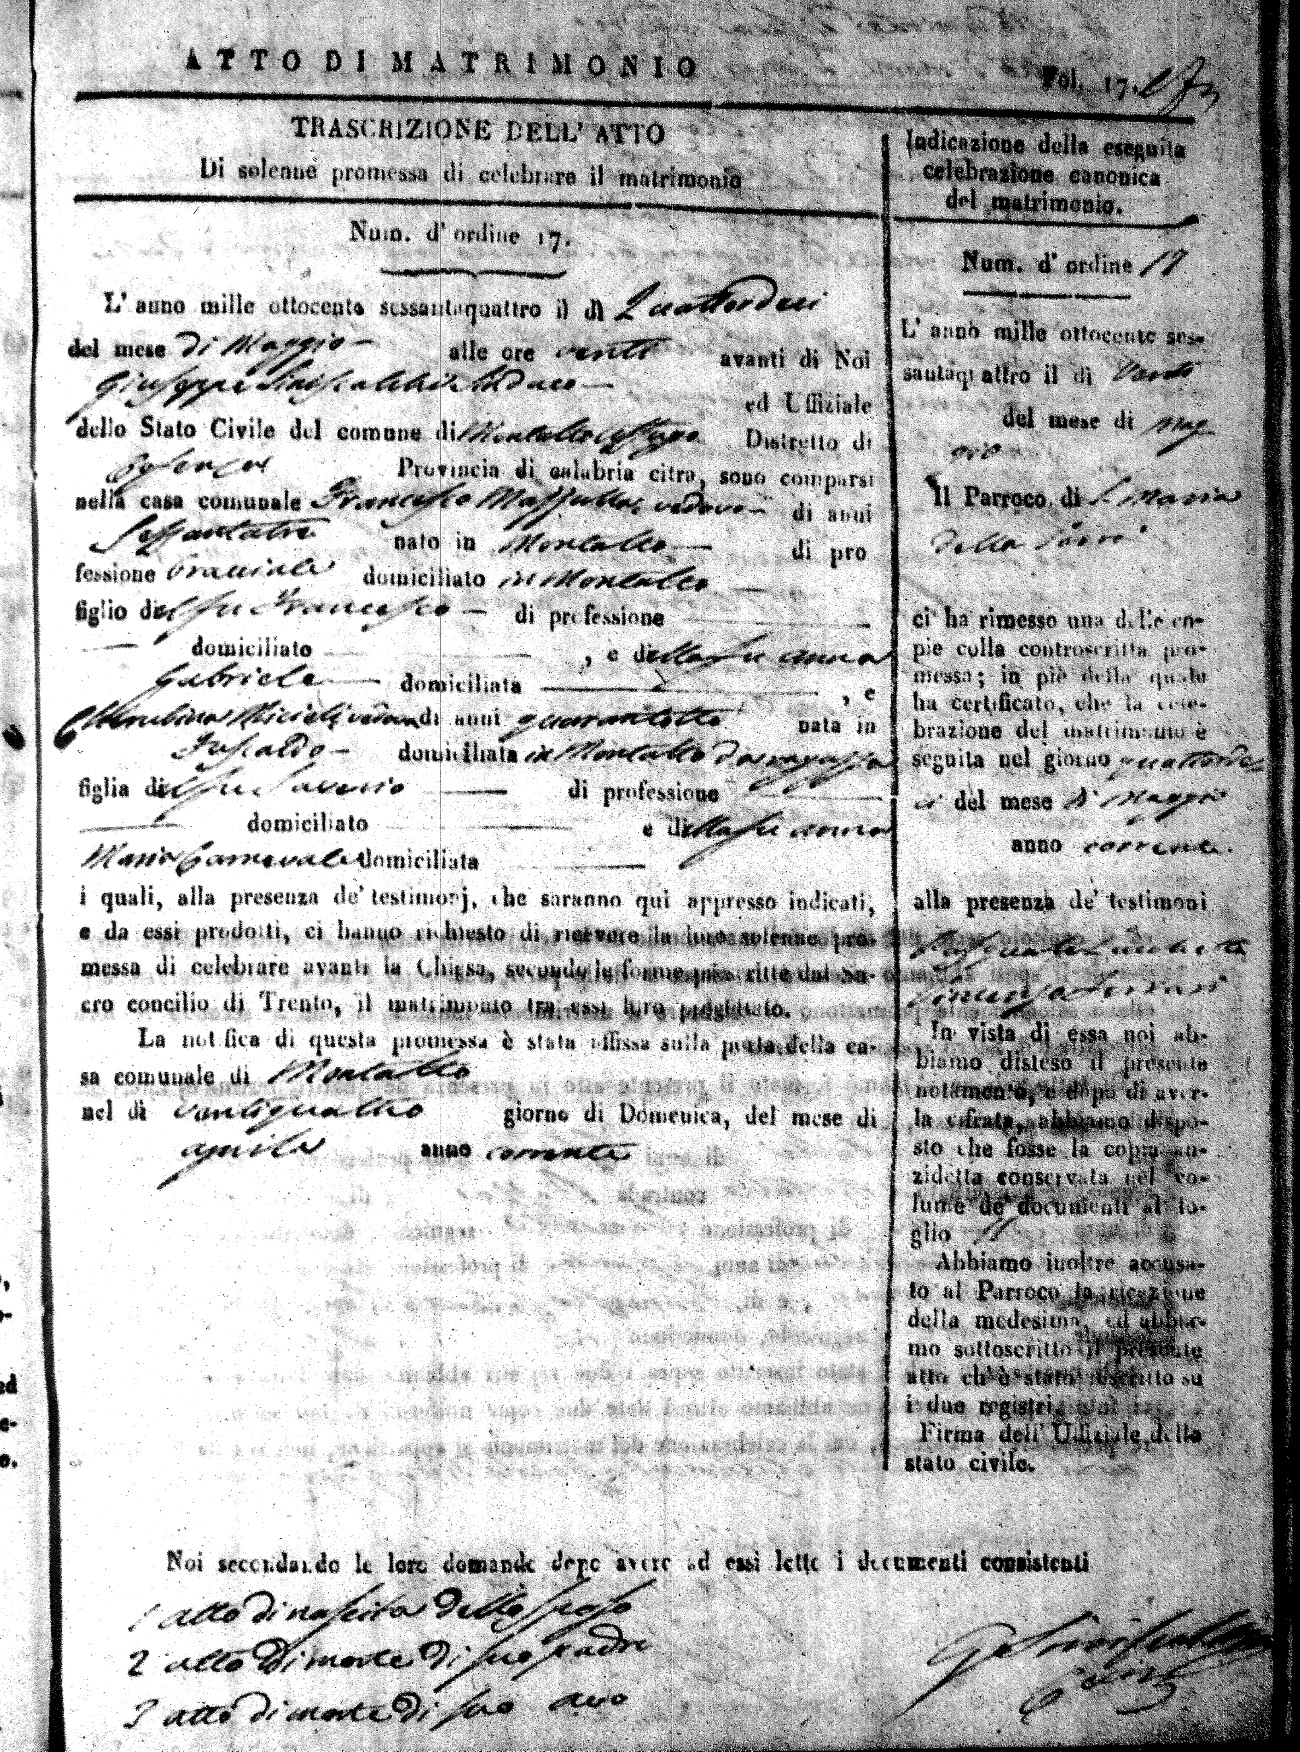 ATTO DI MATRIMONIO
Fol. 17.
TRASCRIZIONE DELL' ATTO
Di solenne promessa di celebrare il matrimonio
Num. d' ordine 17.
L' anno mille ottocento sessantaquattro il dì Quattordici
del mese di Maggio alle ore venti avanti di Noi
Giuseppe Siniscalchi Sindaco
ed Uffiziale
dello Stato Civile del comune di Montalto Uffugo Distretto di
Cosenza Provincia di calabria citra, sono comparsi
nella casa comunale Francesco vedovo di anni
Sessantatre nato in Montalto di pro
fessione bracciale domiciliato in Montalto
figlio del fu Francesco di professione
domiciliato , e della fu Anna
Gabriele domiciliata , e
Cherubina Miceli vedova di anni quarantotto nata in
Fuscaldo domiciliata in Montalto
figlia del fu Saverio di professione
domiciliato e della fu Anna
Maria Carnevale domiciliata
i quali, alla presenza de' testimonj, che saranno qui appresso indicati,
e da essi prodotti, ci hanno richiesto di ricevere la loro solenne pro-
messa di celebrare avanti la Chiesa, secondo le forme prescritte dal sa-
cro concilio di Trento, il matrimonio tra essi loro progettato.
La notifica di questa promessa è stata affissa sulla porta della ca-
sa comunale di Montalto
nel dì ventiquattro giorno di Domenica, del mese di
aprile anno corrente
Indicazione della eseguita
celebrazione canonica
del matrimonio.
Num. d' ordine 17
L' anno mille ottocento ses-
santaquattro il di Venti
del mese di mag
gio
Il Parroco di S. Maria
della
ci ha rimesso una delle co-
pie colla controscritta pro-
messa; in piè della quale
ha certificato, che la cele-
brazione del matrimonio è
seguita nel giorno quattordi
ci del mese di Maggio
anno corrente.
alla presenza de' testimoni
Pasquale
Vincenzo Ferrari
In vista di essa noi ab-
biamo disteso il presente
notamento, e dopo di aver-
la cifrata, abbiamo dispo-
sto che fosse la copia an-
zidetta conservata nel vo-
lume de' documenti al fo-
glio
Abbiamo inoltre accusa-
to al Parroco la ricezione
della medesima, ed abbia-
mo sottoscritto il presente
atto ch' è stato inscritto su
i due registri
Firma dell' Uffiziale della
stato civile.
Noi secondando le loro domande dopo avere ad essi lette i documenti consistenti
1 atto di nascita dello sposo
2 atto di morte di suo padre
3 atto di morte di suo avo